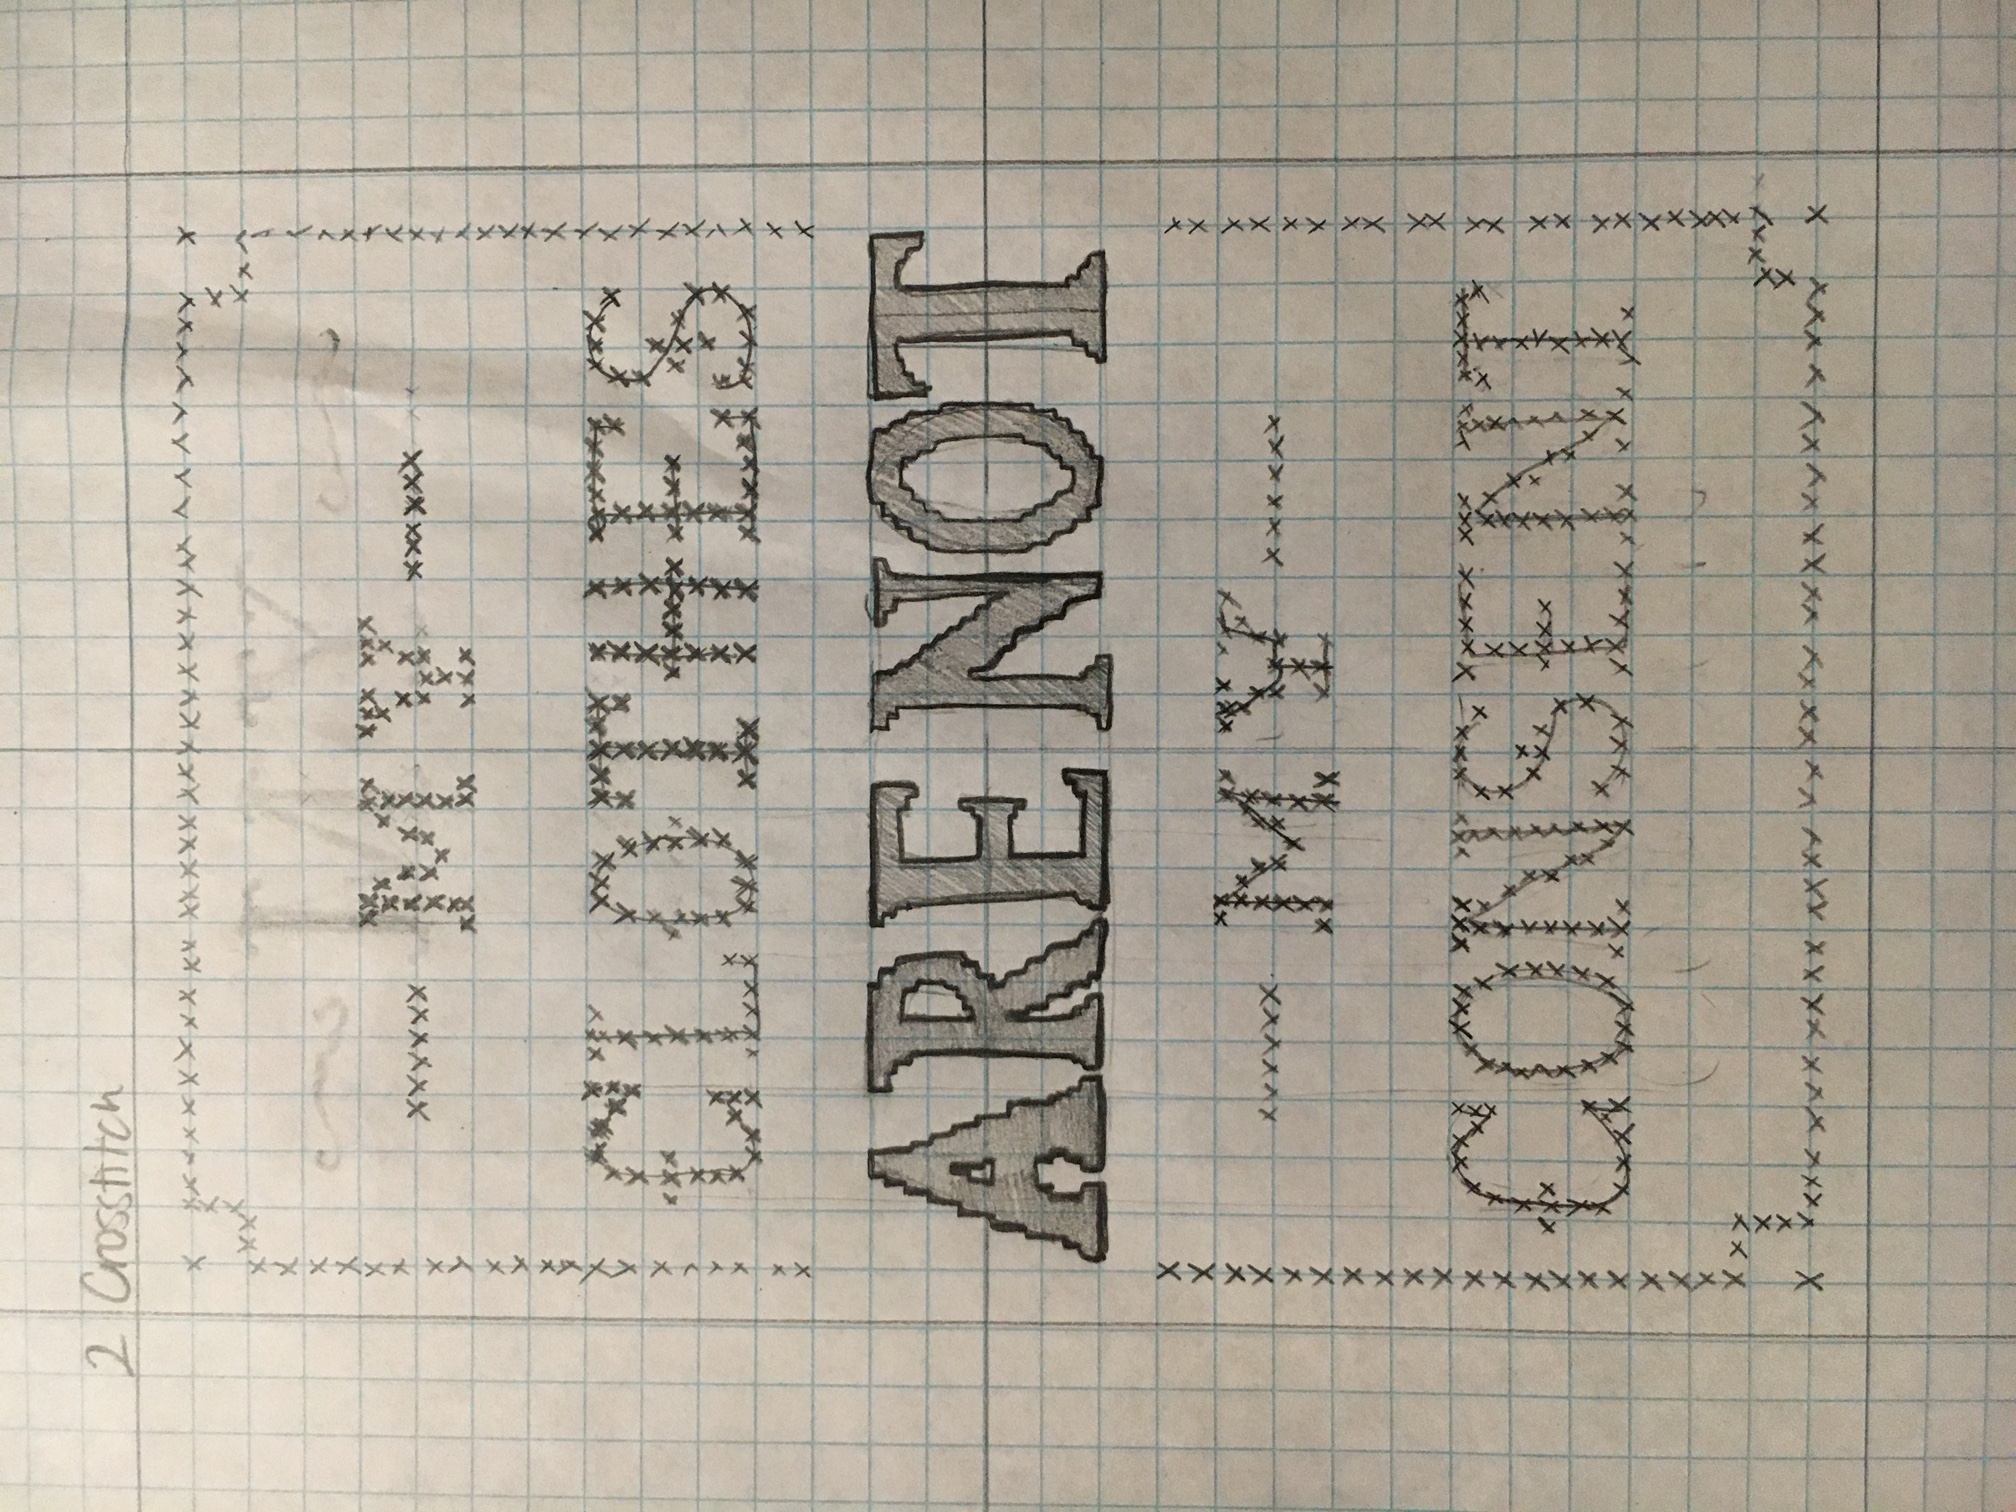 2 Crosstitch
MY
CLOTHES
ARE NOT
MY
CONSENT